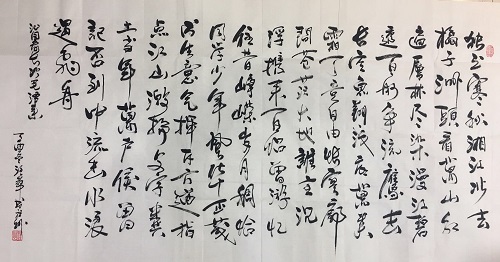 独立寒秋湘江北去
橘子洲頭看萬山红
遍层林尽染漫江碧
透百舸争流鹰击
长空鱼翔浅底萬类
霜天竞自由怅寥廓
問苍茫大地谁主沉
浮携来百侣曾游忆
往昔峥嵘岁月稠恰
同学少年風华正茂
书生意气挥斥方遒指
点江山激扬文字粪
土当年萬户侯曾
記否到中流击水浪
遏飛舟
沁园春长沙毛泽東
丁酉